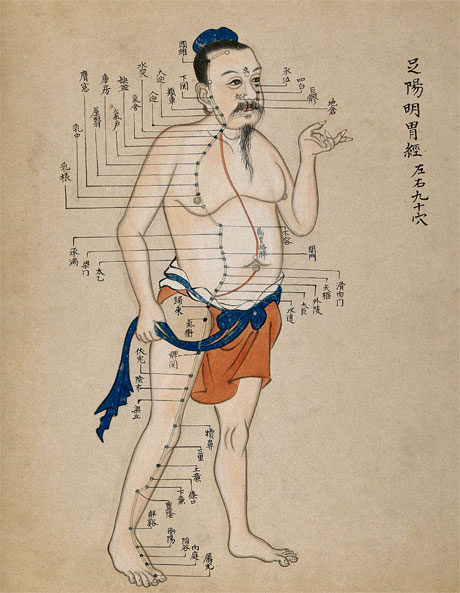 足陽明胃經
左右九十穴
頭維
下関
頰車
大迎
人迎
水突
氣舍
缺盆
氣户
庫房
屋翳
膺窓
乳中
乳根
承泣
四白
巨髎
地倉
不容
関門
承滿
梁门
太乙
滑肉门
天樞
外陵
大巨
水道
歸來
氣衝
髀関
伏兎
陰市
梁丘
犢鼻
三里
上廉
條口
下廉
豐隆
解谿
衝陽
陷谷
內庭
厲兌